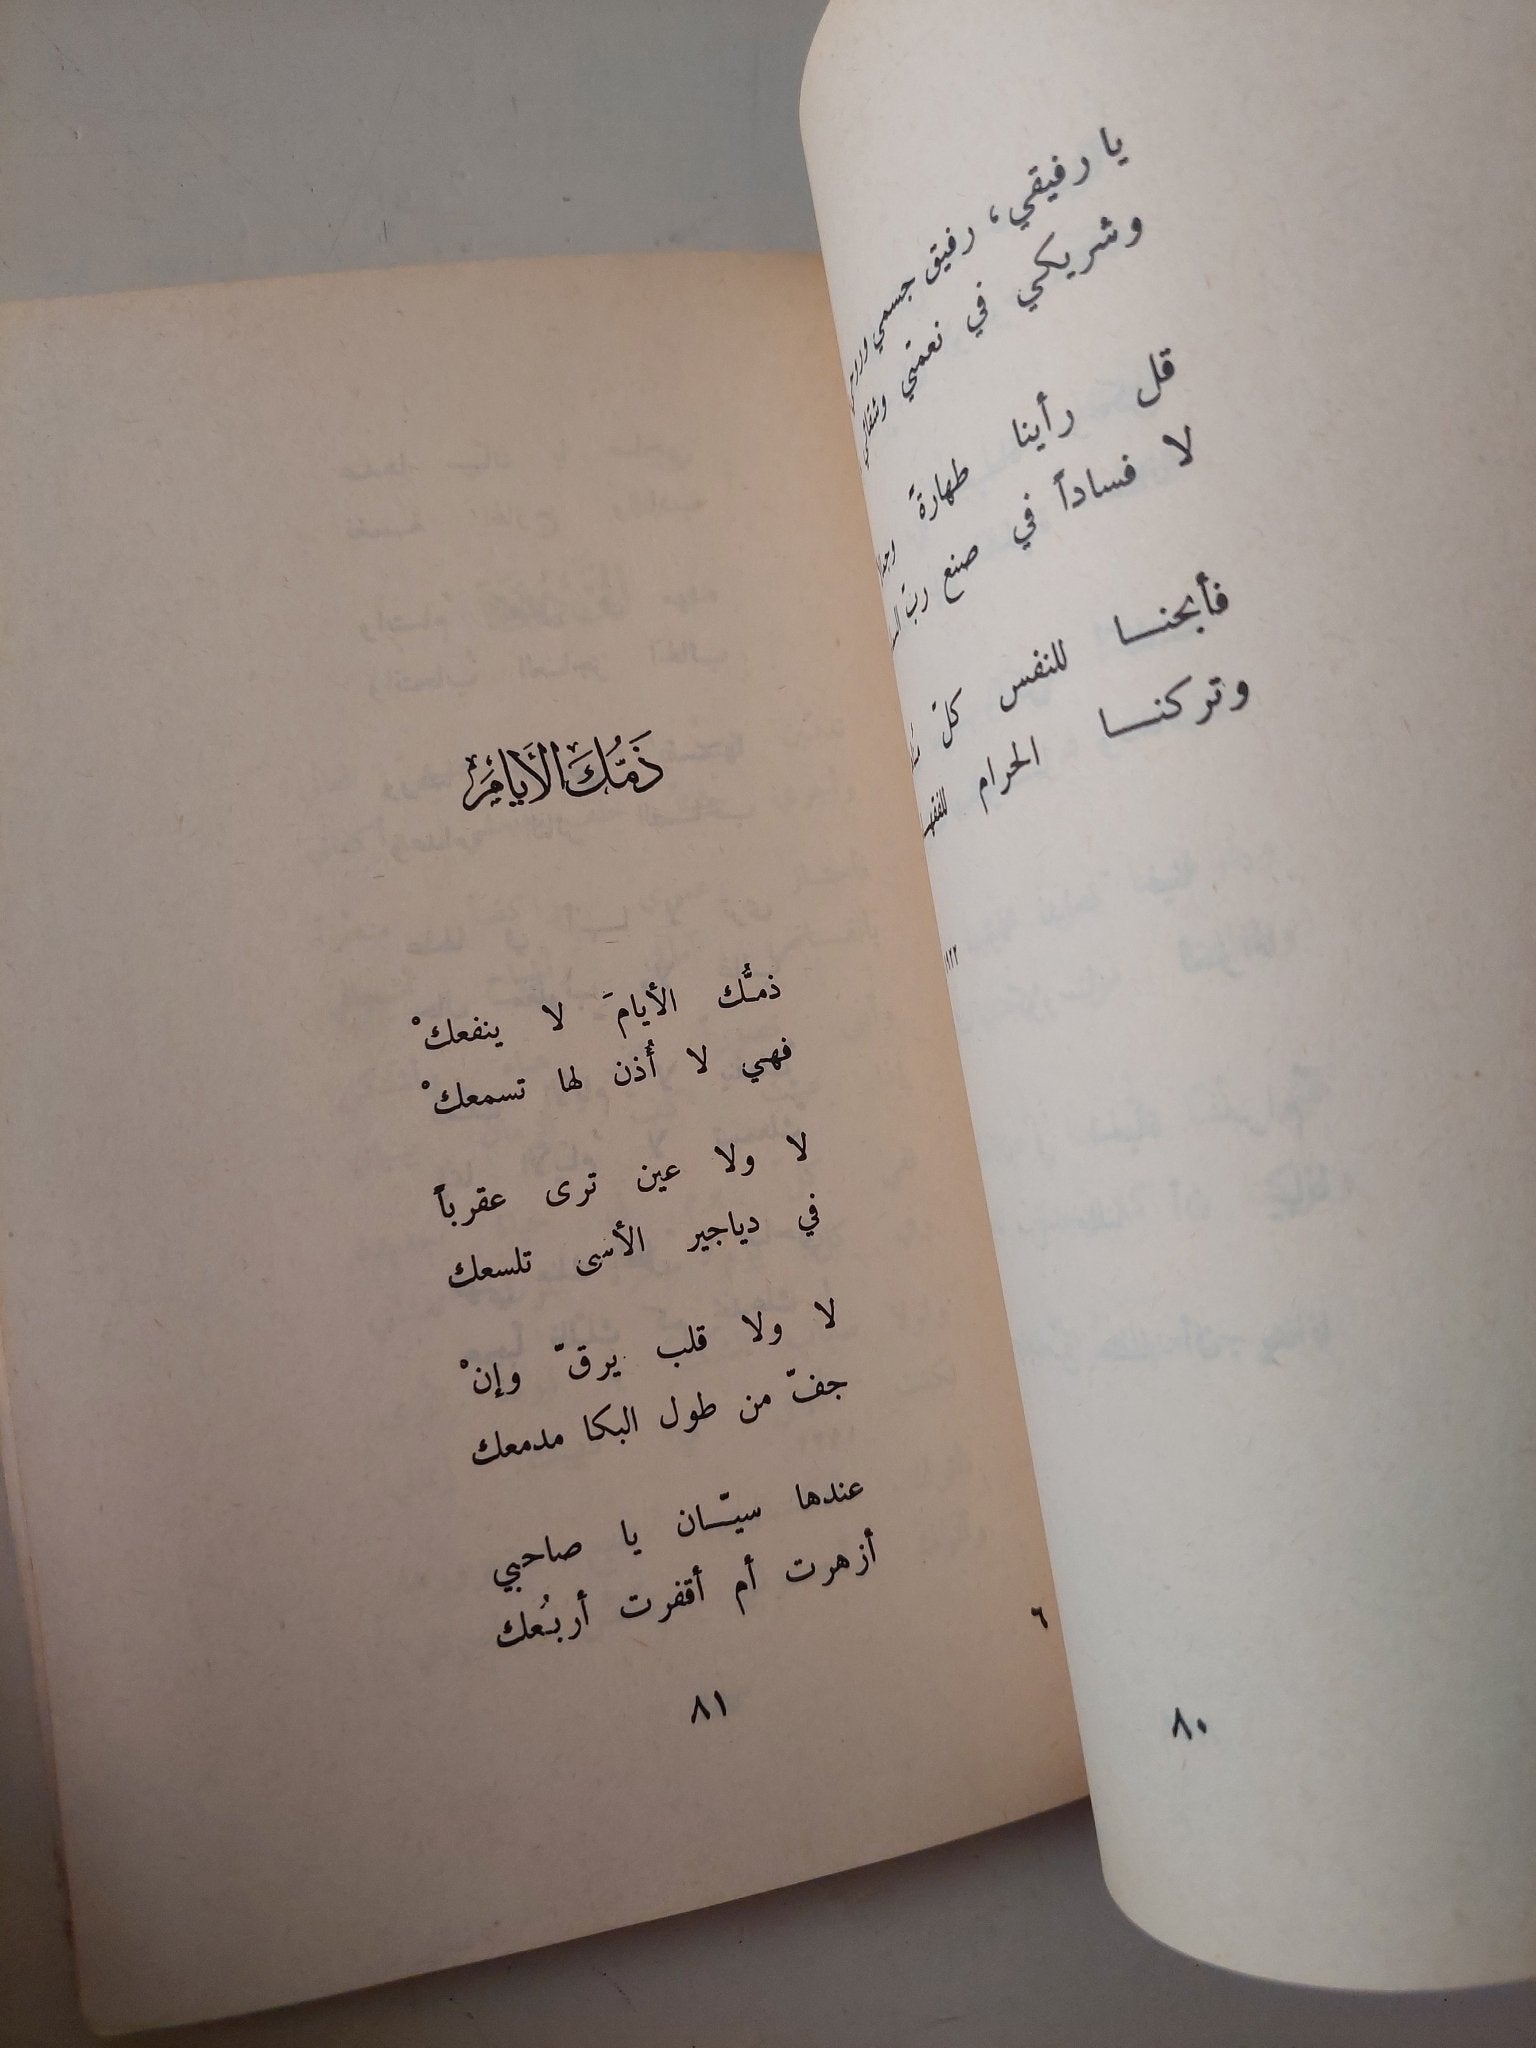 يا رفيقي، رفيق جسمي
وشريكي في نعمتي
قل رأينا طهارةً
لا فساداً في صنع ربّ
فأبحنــا للنفس كلّ
وتركنــا الحرام
٨٠
ذَمُّكَ الأَيامَ
ذمُّك الأيامَ لا ينفعكْ
فهي لا أُذن لها تسمعكْ
لا ولا عين ترى عقرباً
في دياجير الأسى تلسعك
لا ولا قلب يرقّ وإنْ
جفّ من طول البكا مدمعك
عندها سيّــان يا صاحبي
أزهرت أم أقفرت أربُعك
٦
٨١